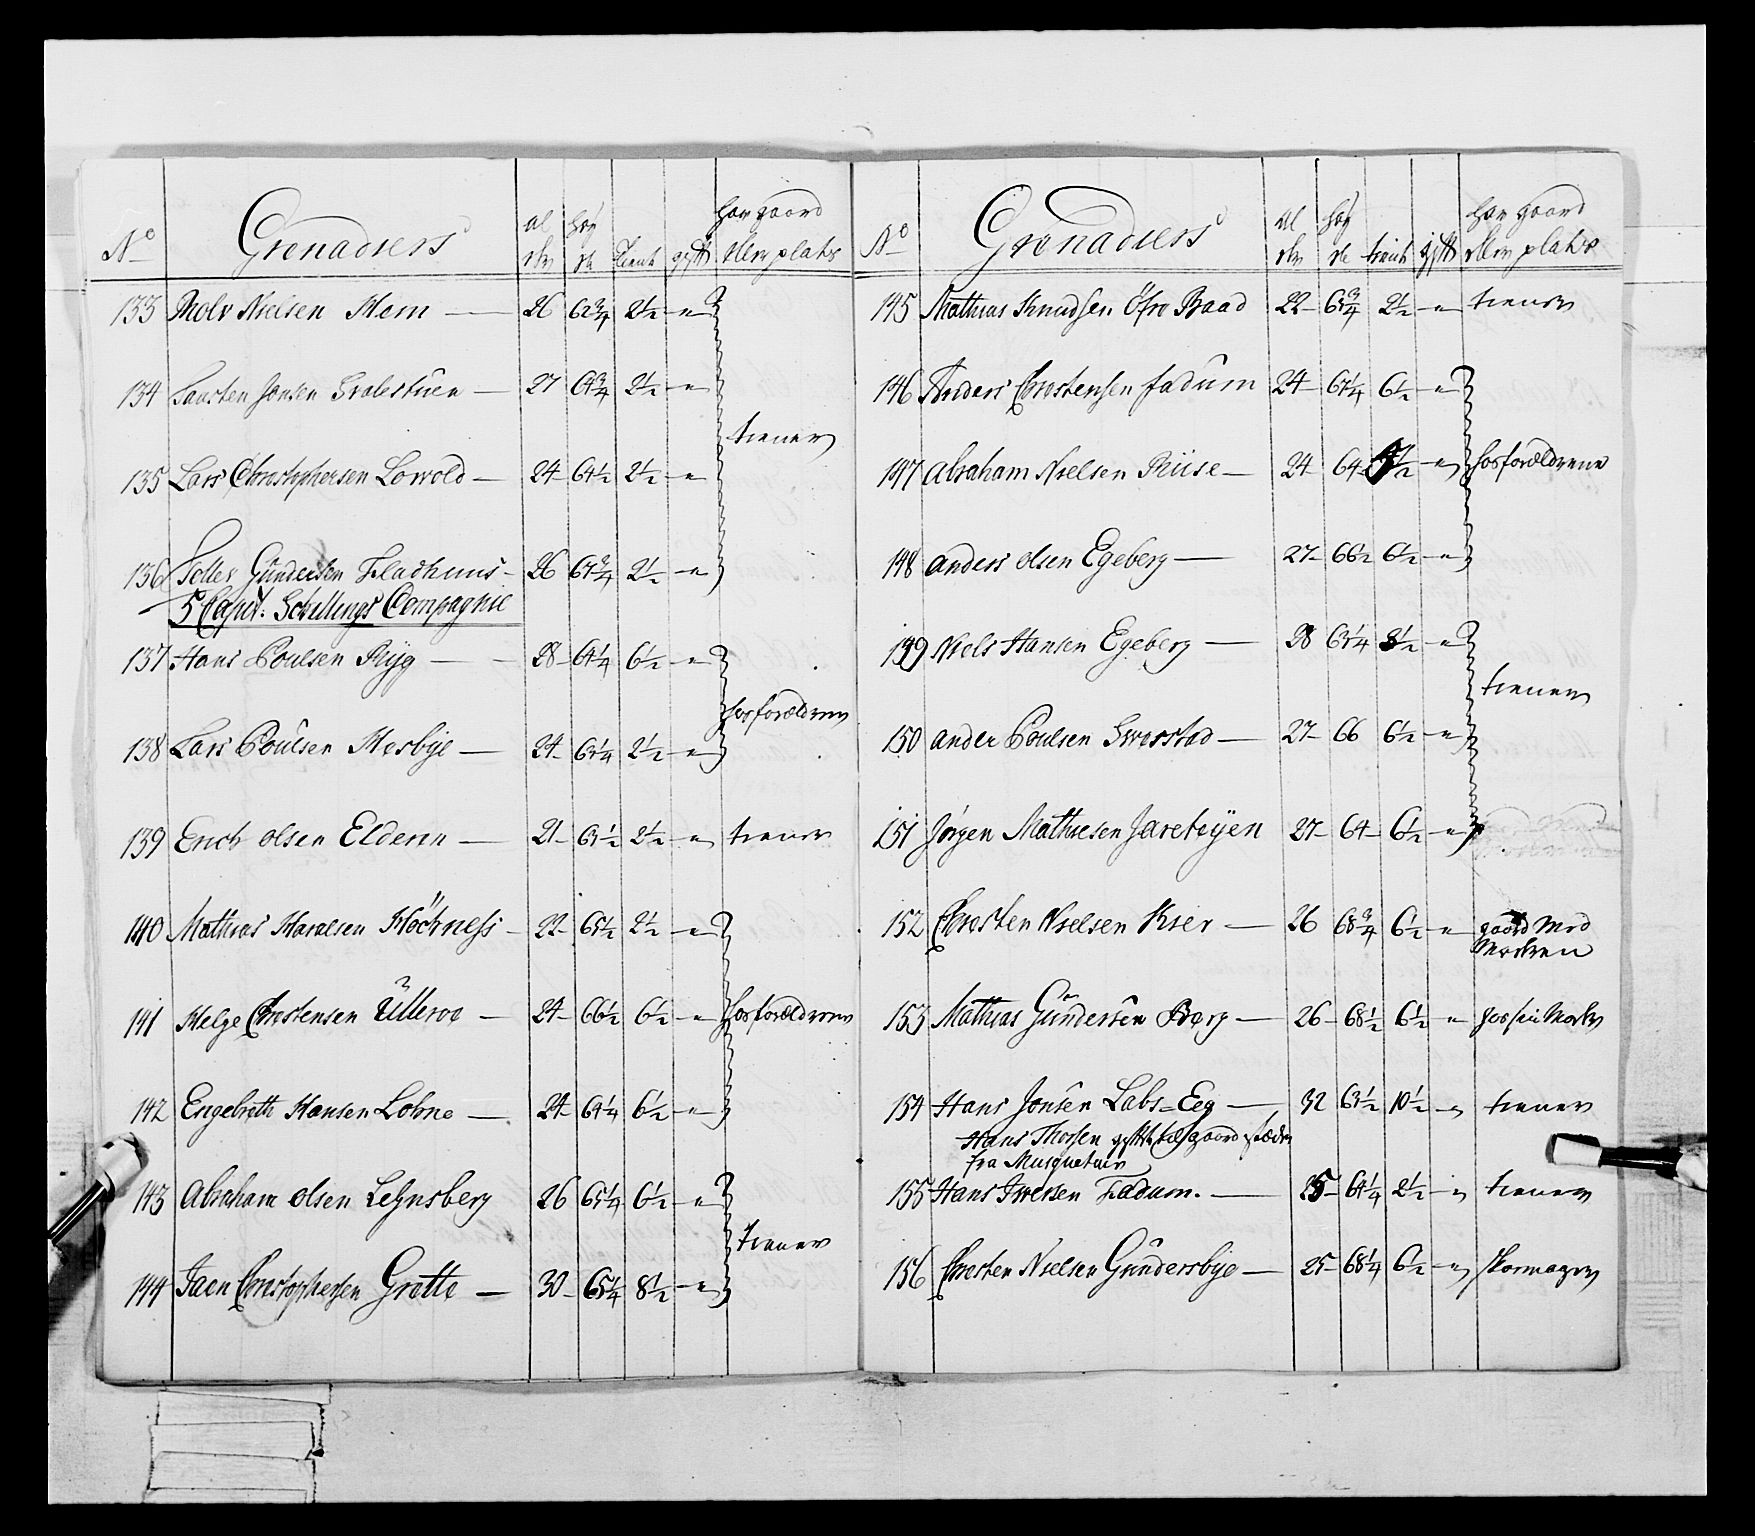 No Grenadiers al der høy de tient gift har gaard eller plads
133 Rolv Nielsen Mem — 26 62¾ 2½ — "
134 Laarsten Jonsen Svalestuen — 27 64¾ 2½ — "
tiener
135 Lars Christophersen Lovold — 24 64½ 2½ — "
136 Peller Gundersen Fladhuus — 26 67¾ 2½ — "
5 Capit: Schillings Compagnie
137 Hans Poulsen Ryg — 28 64¼ 6½ — "
hos forældrene
138 Lars Poulsen Mesbye — 24 63¼ 2½ — "
139 Erich Olsen Elderen — 21 63½ 2½ — " tiener
140 Mathias Haralsen — 22 65½ 2½ — "
141 Helge Christensen Ulleroe — 24 66½ 6½ — " hos forældrene
142 Engebreth Hansen Lobne — 24 64¼ 6½ — "
143 Abraham Olsen Lehnsberg 26 65¼ 6½ — "
tiener
144 Jaen Christophersen Grotte — 30 65¼ 8½ — "
No Grenadiers al der høy de tient gift har gaard eller plads
145 Mathias Knudsen Öfre Raad 22 63¾ 2½ — " tiener
146 Anders Christensen Fadum 24 67¼ 6½ — "
147 Abraham Nielsen Riise — 24 64 — " hos forældrene
148 Anders Olsen Egeberg — 27 66½ 6½ — "
149 Niels Hansen Egeberg — 28 63¼ — "
tiener
150 Ander Poulsen Sverstad — 27 66 6½ — "
151 Jörgen Mathiesen Jareteyen 27 64 6½ — "
152 Christen Nielsen Kier — 26 68¾ 6½ — " gaard Med Moderen
153 Mathias Gundersen Berg — 26 68½ 6½ — " hos sin Moder
154 Hans Jonsen Labs=Eeg — 32 63½ 10½ — " tiener
Hans Thorsen gift har gaard
fra Musqueteer
155 Hans Iversen Fadum. — 25 64¼ 2½ — " tiener
156 Christen Nielsen Gundersbye — 25 68¼ 6½ — " skomager